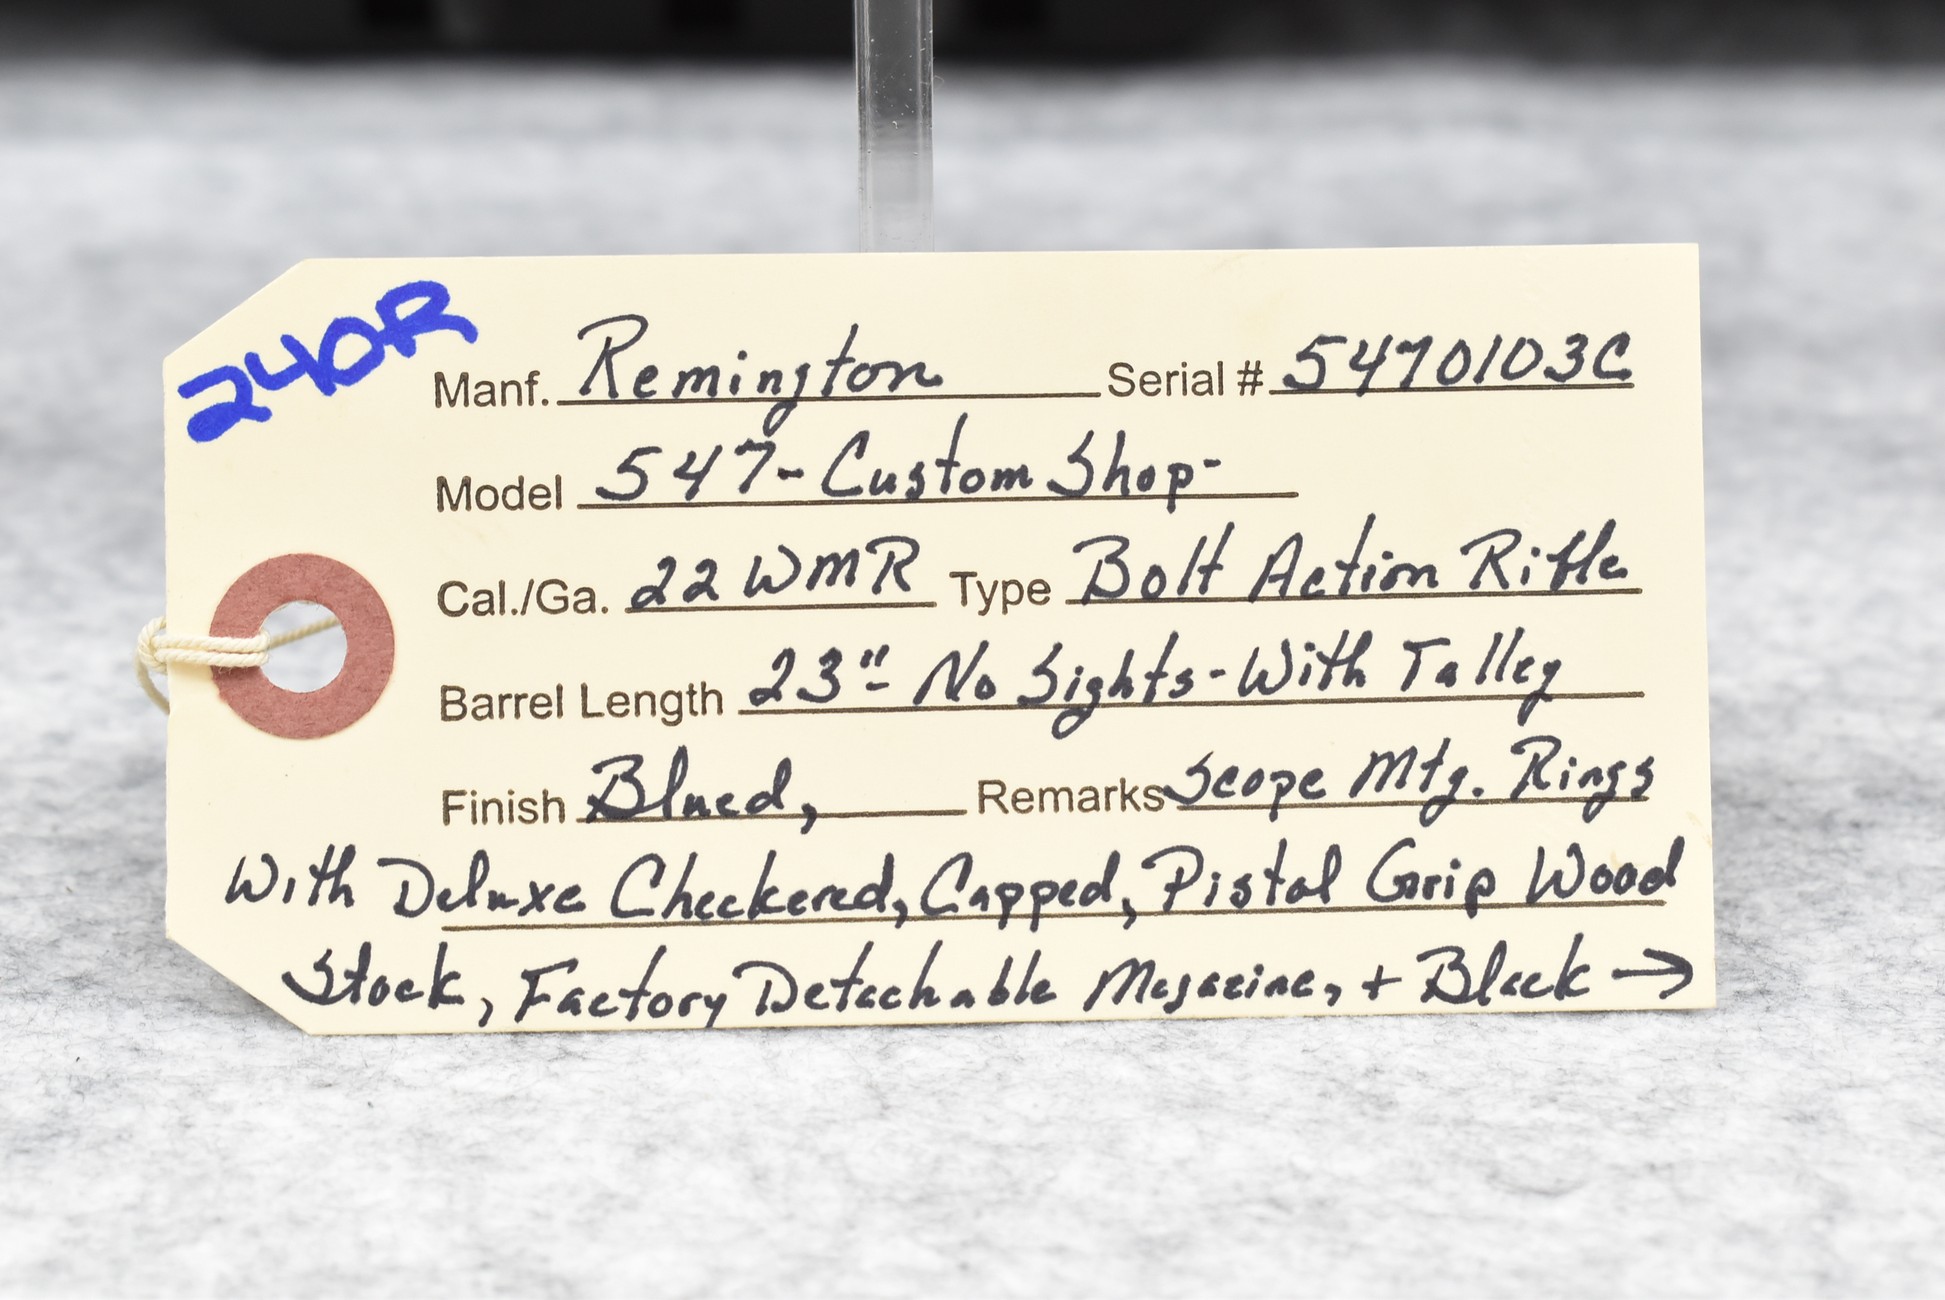 240R
Manf. Remington Serial # 5470103C
Model 547-Custom Shop-
Cal./Ga. 22 WMR Type Bolt Action Rifle
Barrel Length 23"- No Sights-With Talley
Finish Blued, Remarks Scope Mtg. Rings
With Deluxe Checkered, Capped, Pistol Grip Wood
Stock, Factory Detachable Magazine, + Black →